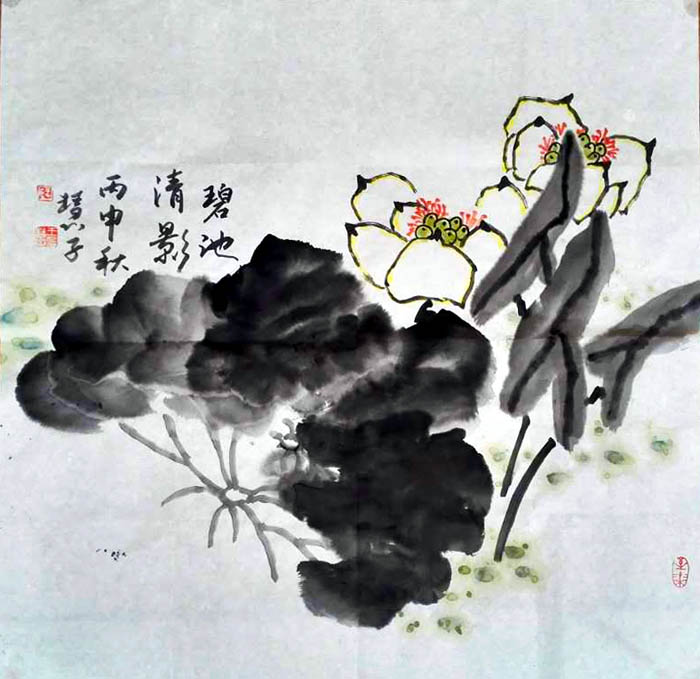 碧池
清影
丙申秋
慧子